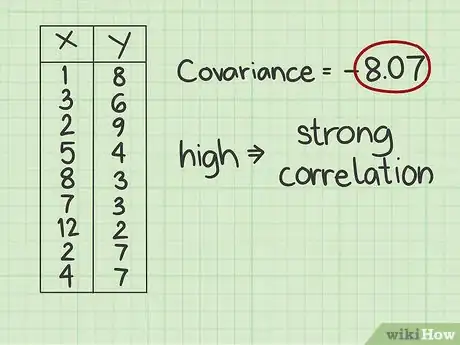 X Y
1 8
3 6
2 9
5 4
8 3
7 3
12 2
2 7
4 7
Covariance = -8.07
high ⇒ strong
correlation
wikiHow